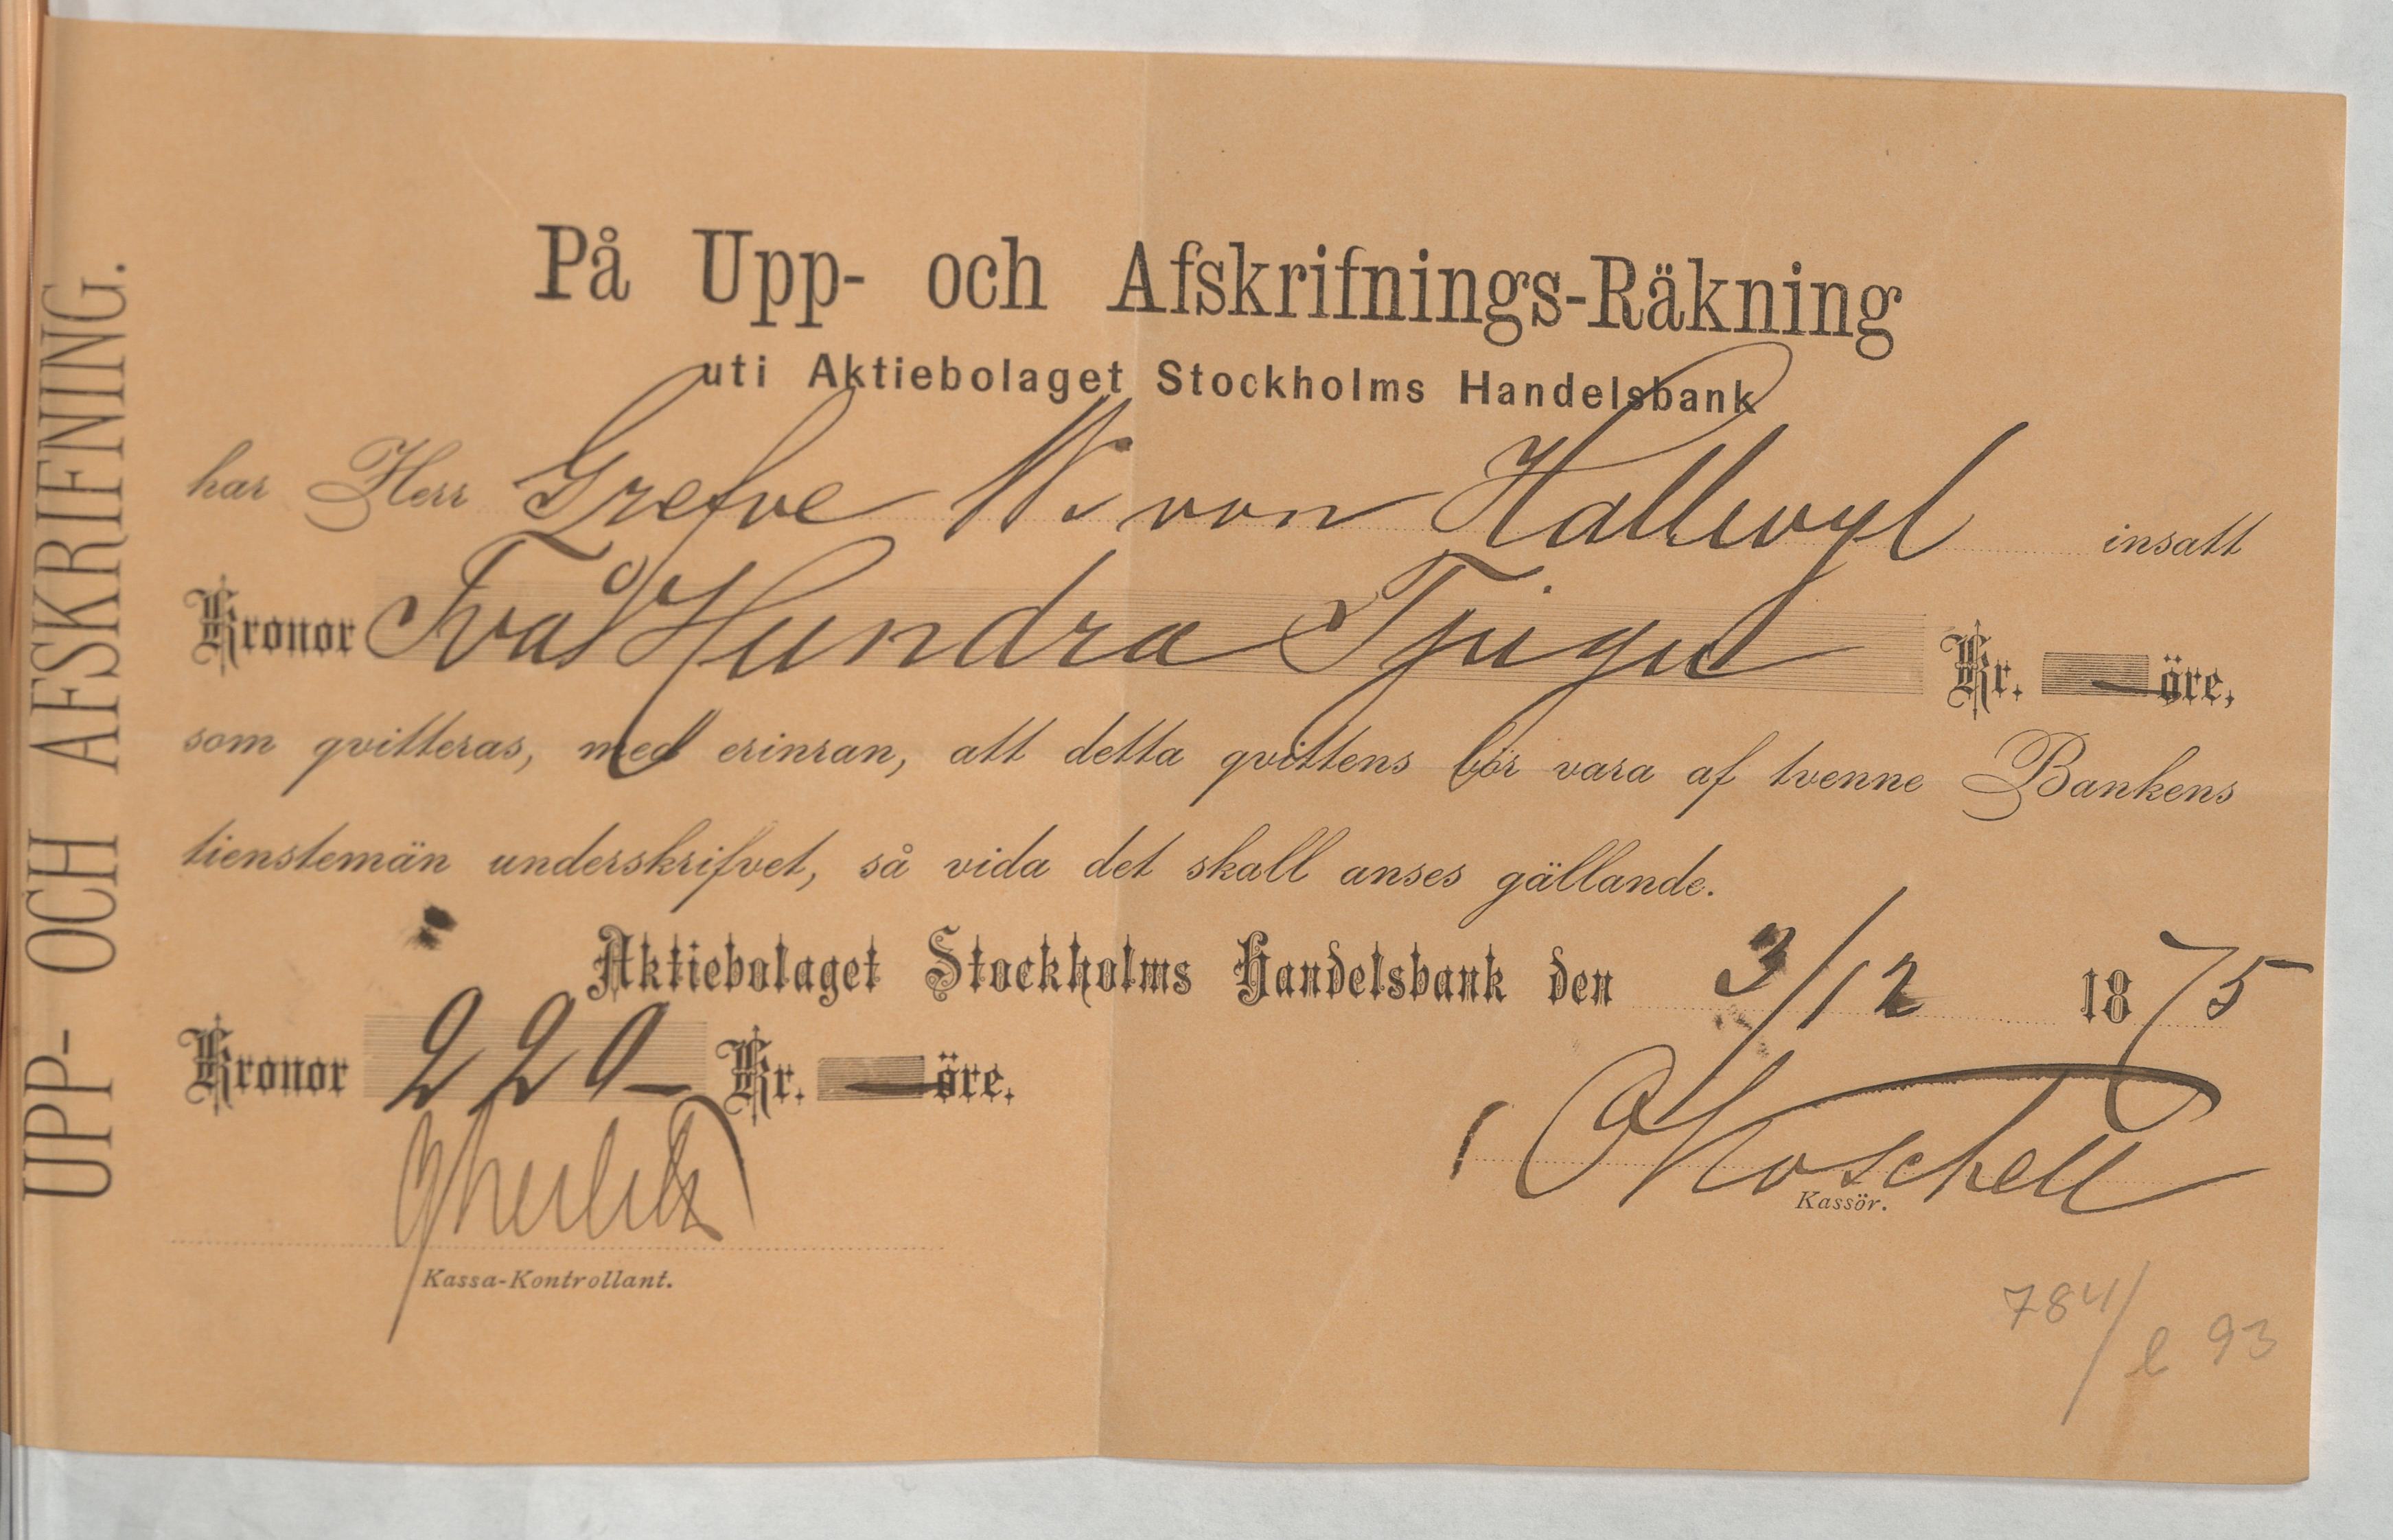 UPP- OCH AFSKRIFNING.
På Upp- och Afskrifnings-Räkning
uti Aktiebolaget Stockholms Handelsbank
har Herr Grefve W. von Hallwyl insatt
Kronor Två Hundra Tjugu Kr. — öre,
som qvitteras, med erinran, att detta qvittens bör vara af tvenne Bankens
tienstemän underskrifvet, så vida det skall anses gällande.
Aktiebolaget Stockholms Handelsbank den 3/12 1875
Kronor 220 — Kr. — öre.
Kassör.
Kassa-Kontrollant.
784/
l 93